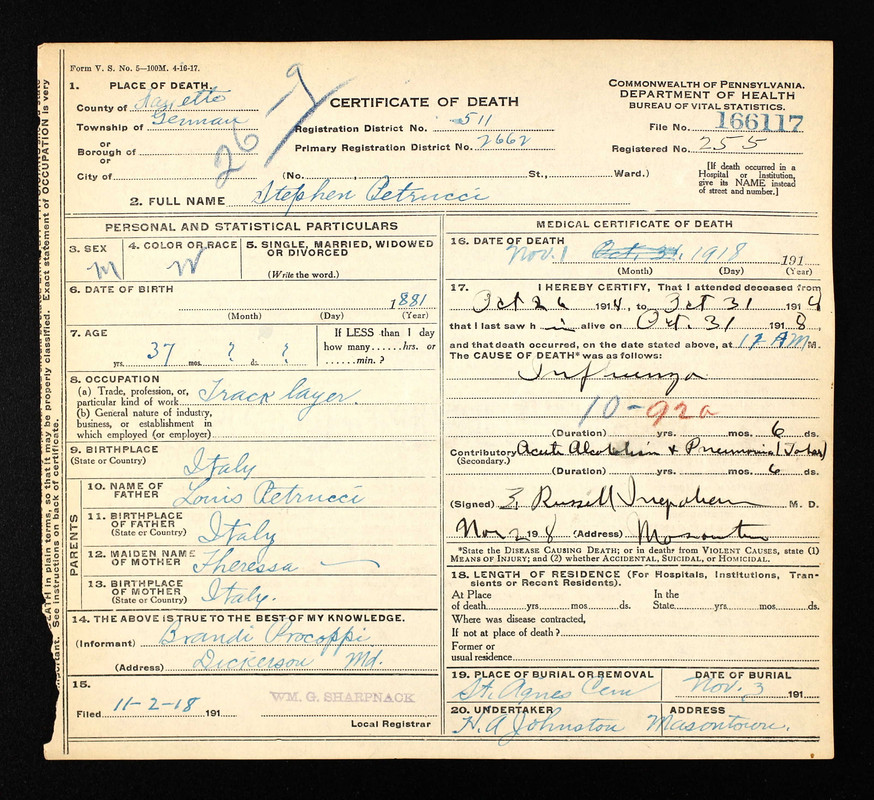 Form V. S. No. 5—100M. 4-16-17.
1. PLACE OF DEATH.
County of Fayette
Township of German
or
Borough of
or
City of
26
9
CERTIFICATE OF DEATH
Registration District No. 511
Primary Registration District No. 2662
(No. , St., Ward.)
COMMONWEALTH OF PENNSYLVANIA.
DEPARTMENT OF HEALTH
BUREAU OF VITAL STATISTICS.
File No. 166117
Registered No. 255
[If death occurred in a
Hospital or Institution,
give its NAME instead
of street and number.]
2. FULL NAME Stephen Petrucci
PERSONAL AND STATISTICAL PARTICULARS
3. SEX
M
4. COLOR OR RACE
W
5. SINGLE, MARRIED, WIDOWED
OR DIVORCED
(Write the word.)
6. DATE OF BIRTH
1881
(Month) (Day) (Year)
7. AGE
37 yrs. ? mos. ? ds.
If LESS than 1 day
how many......hrs. or
......min. ?
8. OCCUPATION
(a) Trade, profession, or,
particular kind of work Track layer.
(b) General nature of industry,
business, or establishment in
which employed (or employer)
9. BIRTHPLACE
(State or Country)
Italy
PARENTS
10. NAME OF
FATHER
Louis Petrucci
11. BIRTHPLACE
OF FATHER
(State or Country)
Italy
12. MAIDEN NAME
OF MOTHER
Theressa —
13. BIRTHPLACE
OF MOTHER
(State or Country)
Italy.
14. THE ABOVE IS TRUE TO THE BEST OF MY KNOWLEDGE.
(Informant) Brandi Procoppi
(Address) Dickerson Md.
15.
Filed 11-2-18 191
WM. G. SHARPNACK
Local Registrar
MEDICAL CERTIFICATE OF DEATH
16. DATE OF DEATH
Nov. 1 Oct. 31. 1918 191
(Month) (Day) (Year)
17. I HEREBY CERTIFY, That I attended deceased from
Oct 26 191, to Oct 31 191
that I last saw h im alive on Oct. 31 1918,
and that death occurred, on the date stated above, at 12 AM M.
The CAUSE OF DEATH* was as follows:
Influenza
10-92a
(Duration) yrs. mos. 6 ds.
Contributory Acute Alcoholism & Pneumonia (Lobar)
(Secondary.)
(Duration) yrs. mos. 6 ds.
(Signed) Russell M. D.
Nov 2 1918 (Address) Masontown
*State the DISEASE CAUSING DEATH; or in deaths from VIOLENT CAUSES, state (1)
MEANS OF INJURY; and (2) whether ACCIDENTAL, SUICIDAL, or HOMICIDAL.
18. LENGTH OF RESIDENCE (For Hospitals, Institutions, Tran-
sients or Recent Residents).
At Place In the
of death yrs. mos. ds. State yrs. mos. ds.
Where was disease contracted,
If not at place of death ?
Former or
usual residence
19. PLACE OF BURIAL OR REMOVAL
St. Agnes Cem
DATE OF BURIAL
Nov. 3 191
20. UNDERTAKER
H. A Johnston
ADDRESS
Masontown.
DEATH in plain terms, so that it may be properly classified. Exact statement of OCCUPATION is very
important. See instructions on back of certificate.